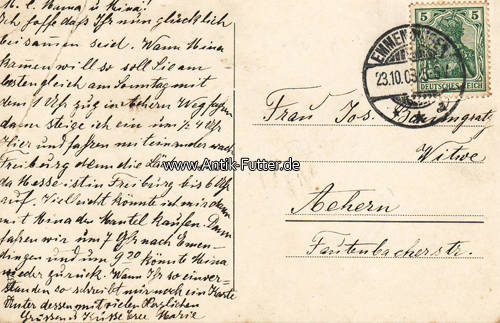 M. l. Mama u Mina!
Ich hoffe daß Ihr nun glücklich
beisamen seid. Wann Mina
kamen will so soll Sie am
besten gleich am Sonntag mit
dem 1 Uhr zug in Achern Weg fahren
dann steige ich ein um 1/2 4 Uhr
hier und fahren mit einander nach
Freiburg denn die Läden
da Messe ist in Freiburg bis 6 Uhr
auf. Vielleicht könnte ich mir dann
mit Mina den Mantel kaufen. Dann
fahren wir um 7 Uhr nach Emen-
dingen und um 9 20 könnte Mina
wieder zurück. Wann Ihr so einver-
standen so schreibt mir noch ein Karte
Unter dessen mit vielen Herzlichen
Grüssen u Küsse Eure Marie
EMMENDINGEN
23.10.05
5 5
DEUTSCHES REICH
Frau Jos.
Witwe
www.Antik-Futter.de
Achern
Fautenbacherstr.